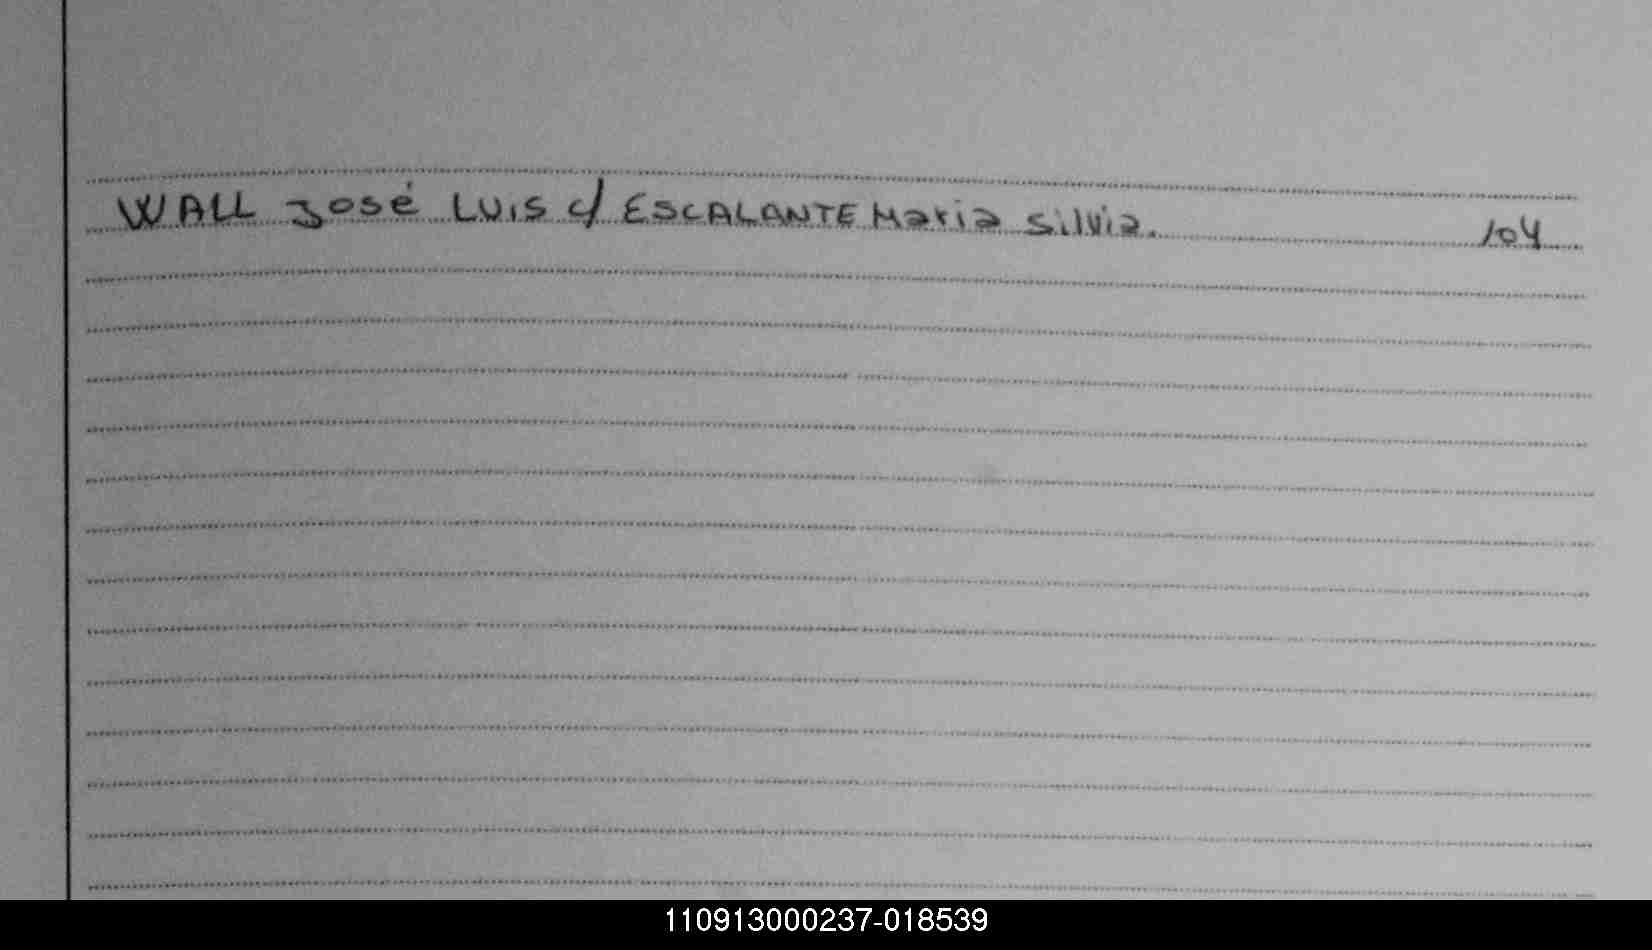 WALL José LUIS c/ ESCALANTE Maria Silvia. 104
110913000237-018539